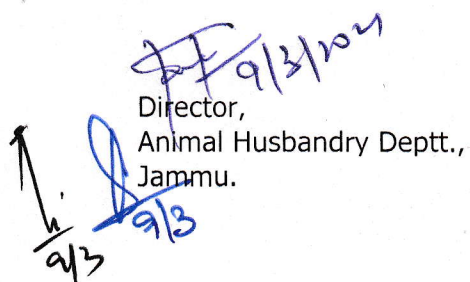 9/3/2021
Director,
Animal Husbandry Deptt.,
Jammu.
9/3
9/3